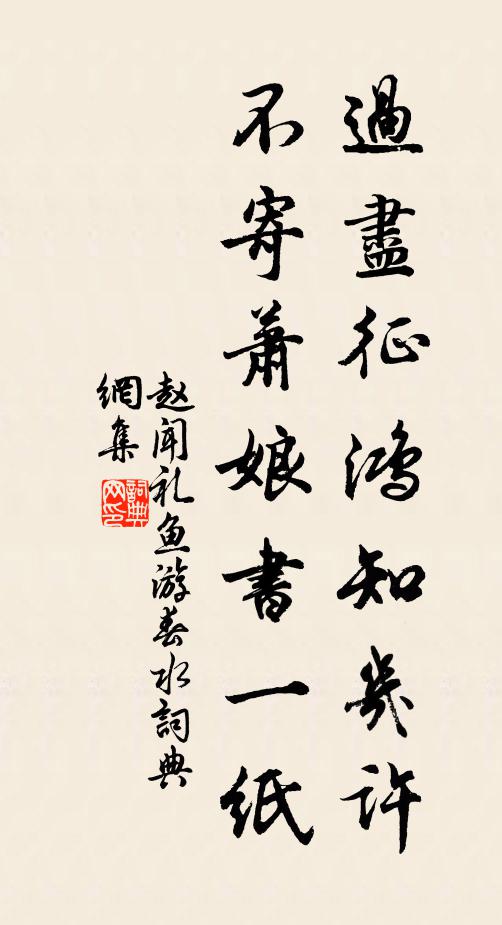 過盡征鸿知幾許
不寄蕭娘書一紙
赵闻礼鱼游春水詞典
網集
詞典
网印